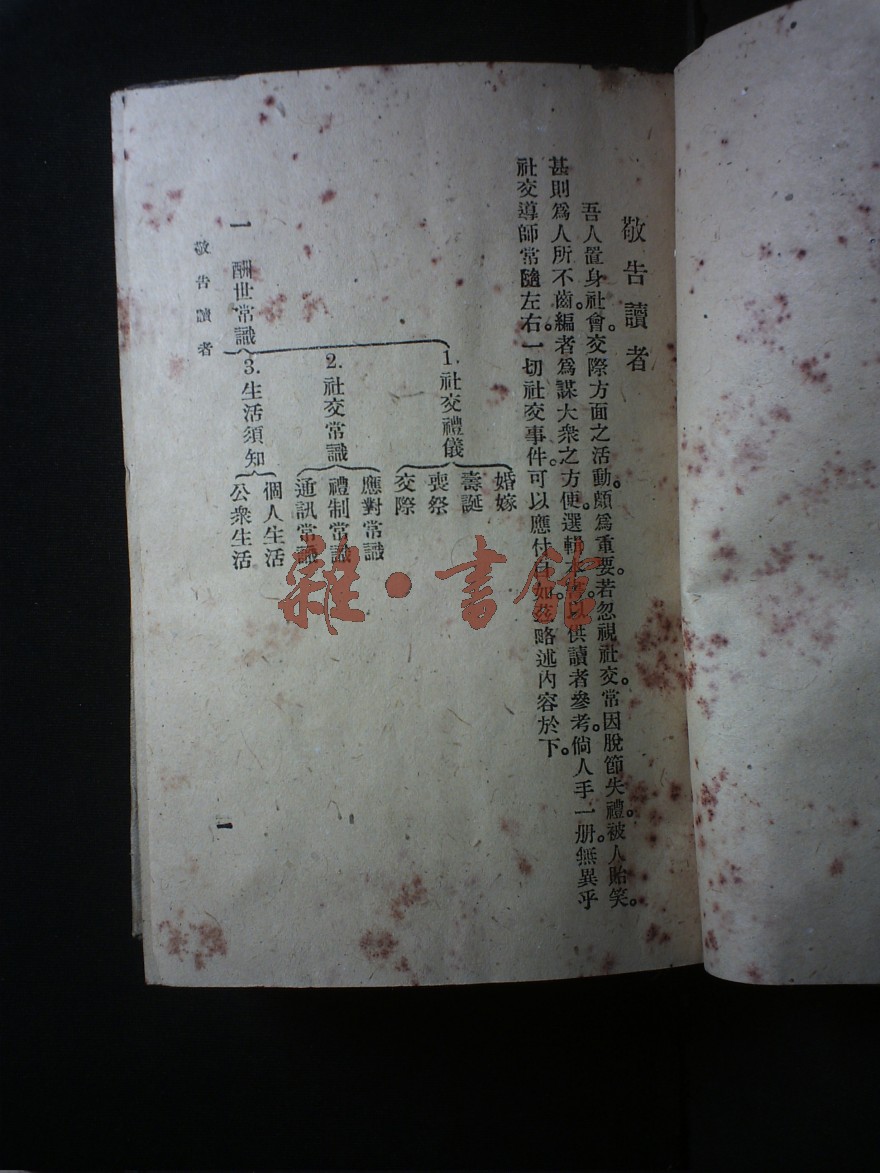 敬告讀者
吾人置身社會。交際方面之活動。頗爲重要。若忽視社交。常因脫節失禮。被人貽笑。
甚則爲人所不齒。編者爲謀大衆之方便。選輯供讀者參考。倘人手一册。無異乎
社交導師常隨左右。一切社交事件。可以應付自如。茲略述內容於下。
一 酬世常識
1. 社交禮儀
婚嫁
壽誕
喪祭
交際
2. 社交常識
應對常識
禮制常識
通訊常識
3. 生活須知
個人生活
公衆生活
敬告讀者
一
雜·書館